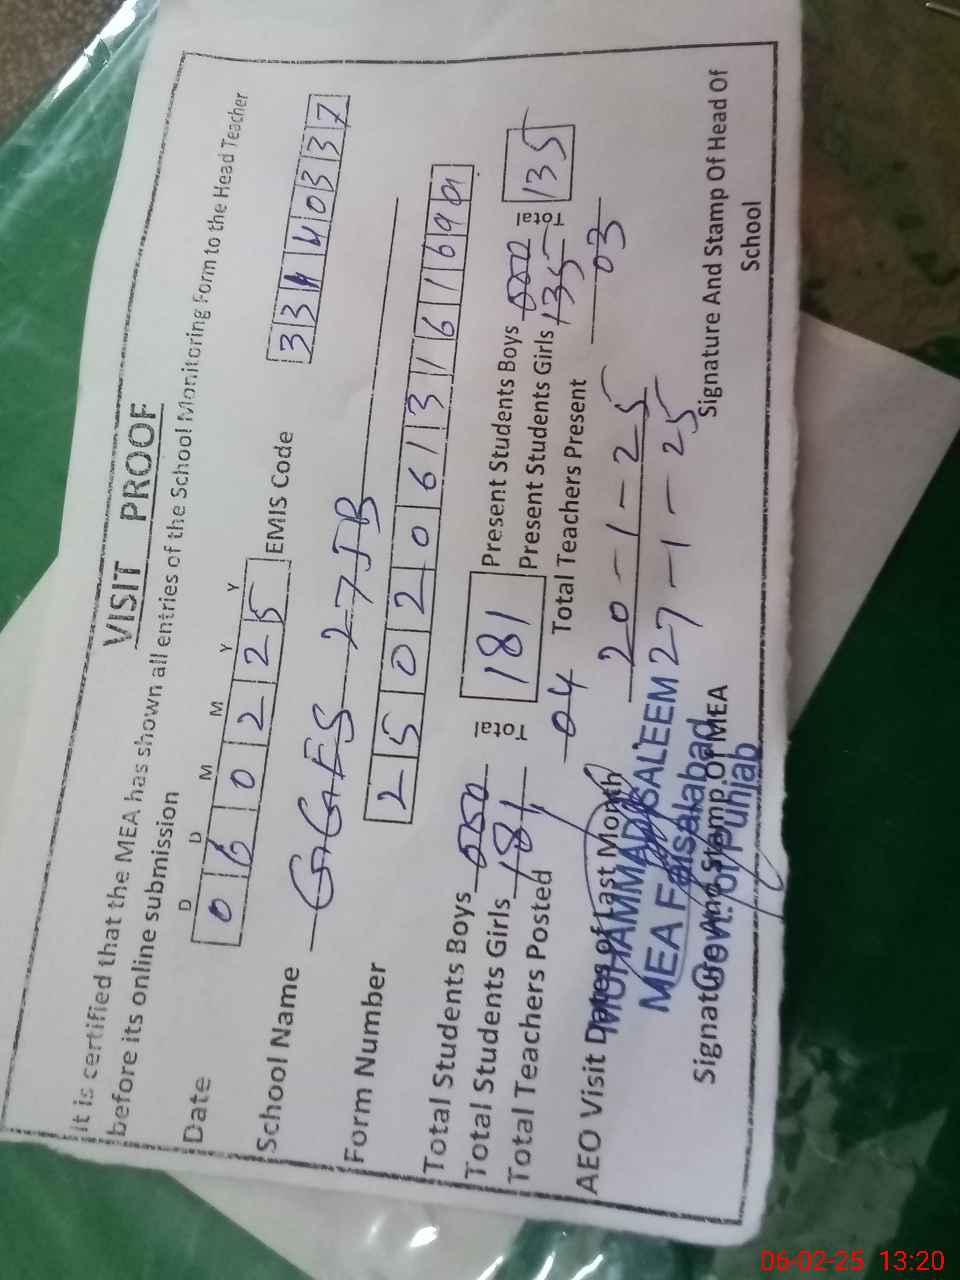 VISIT PROOF
It is certified that the MEA has shown all entries of the School Monitoring Form to the Head Teacher
before its online submission
D D M M Y Y
Date 0 6 0 2 2 5 EMIS Code 3 3 1 4 0 3 3 7
School Name GGES 27JB
Form Number 2 5 0 2 0 6 1 3 1 6 1 6 9
Total Students Boys 000 Total 181 Present Students Boys 000 Total 135
Total Students Girls 181 Present Students Girls 135
Total Teachers Posted 04 Total Teachers Present 03
AEO Visit Dates of Last Month 20-1-25
27-1-25
MUHAMMAD SALEEM
MEA Faisalabad
Govt. of Punjab
Signature And Stamp Of MEA
Signature And Stamp Of Head Of
School
06-02-25 13:20